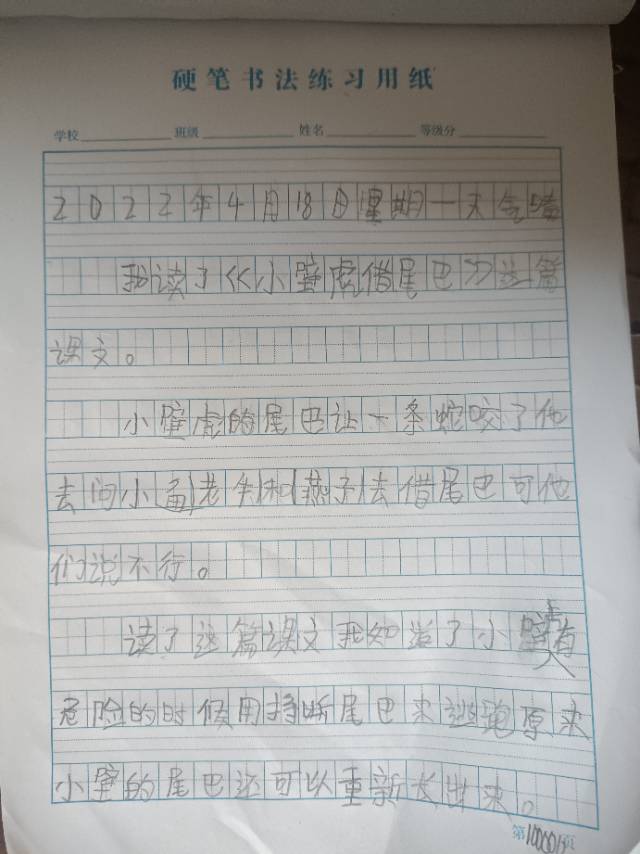 硬笔书法练习用纸
学校 班级 姓名 等级分
2022年4月18日星期一天气晴
我读了《小壁虎借尾巴》这篇
课文。
小壁虎的尾巴让一条蛇咬了他
去问小鱼老牛和燕子去借尾巴可他
们说不行。
读了这篇课文我知道了小壁虎有
危险的时候用挣断尾巴来逃跑原来
小壁的尾巴还可以重新长出来。
第10001页